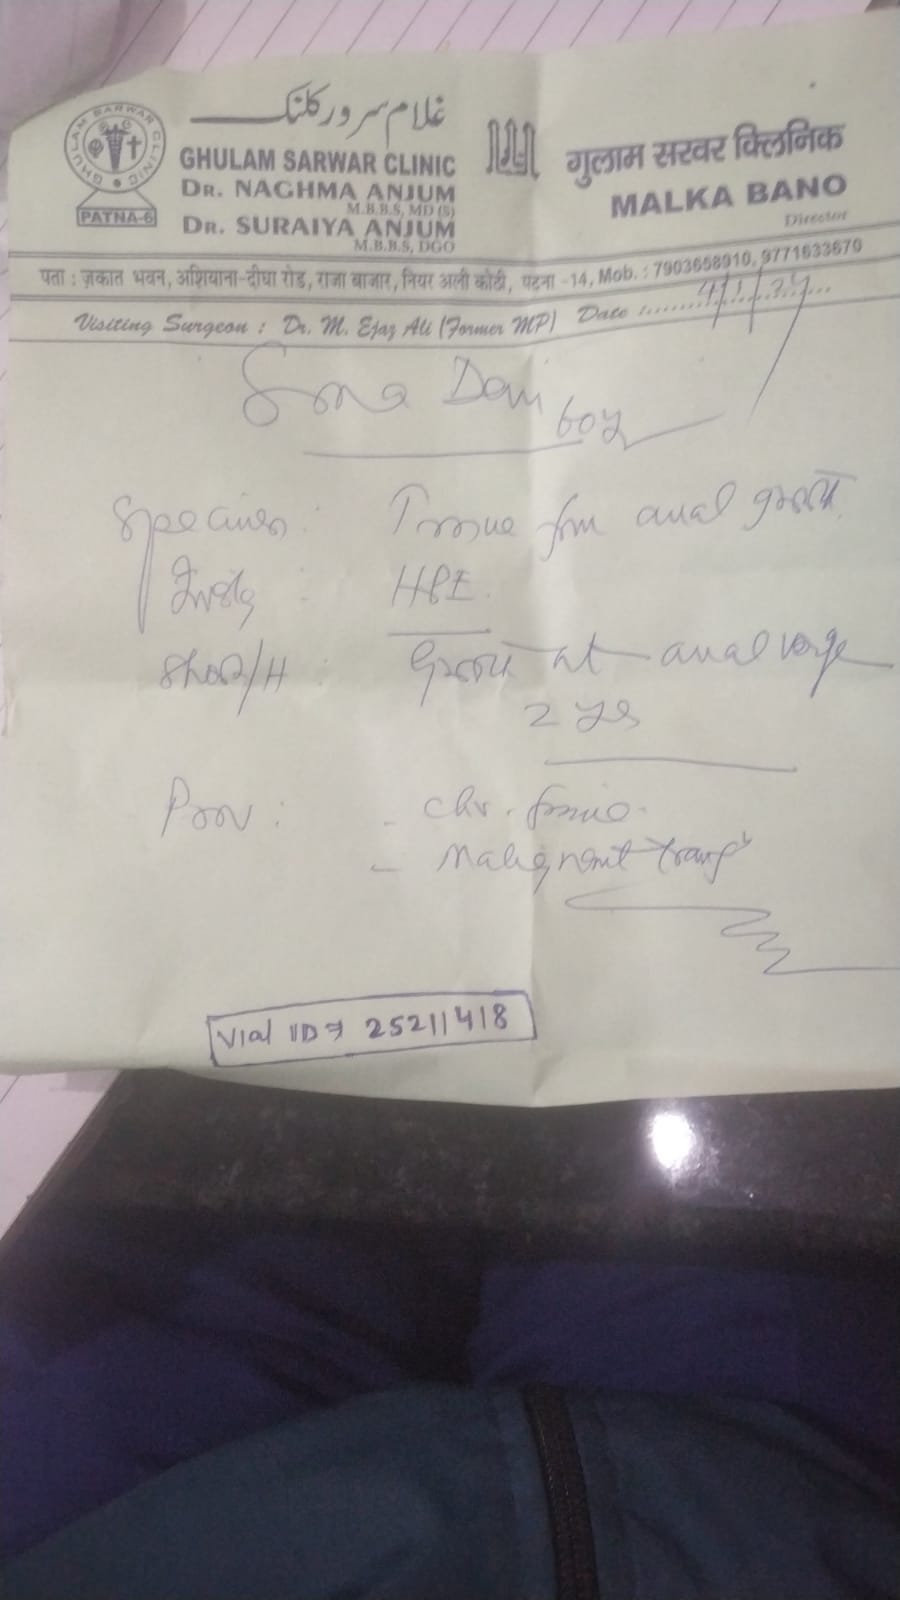 غلام سرور کلنک
GHULAM SARWAR CLINIC
GHULAM SARWAR CLINIC
PATNA-6
DR. NAGHMA ANJUM
M.B.B.S, MD (S)
DR. SURAIYA ANJUM
M.B.B.S, DGO
गुलाम सरवर क्लिनिक
MALKA BANO
Director
पता : ज़कात भवन, अशियाना-दीघा रोड, राजा बाजार, नियर अली कोठी, पटना -14, Mob. : 7903658910, 9771633670
Visiting Surgeon : Dr. M. Ejaz Ali (Former MP) Date :
Devi 60y
Specimen : Tissue from anal growth
: HPE.
Short/H : Growth at anal verge
2 yrs
Prov : - Chr.
- Malignant
Vial ID 25211418